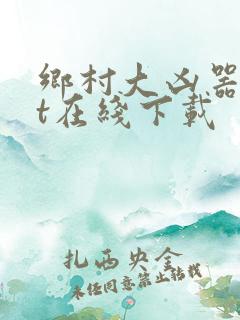 鄉村大凶器
t在綫下載
扎西央金
未任同意禁止转载